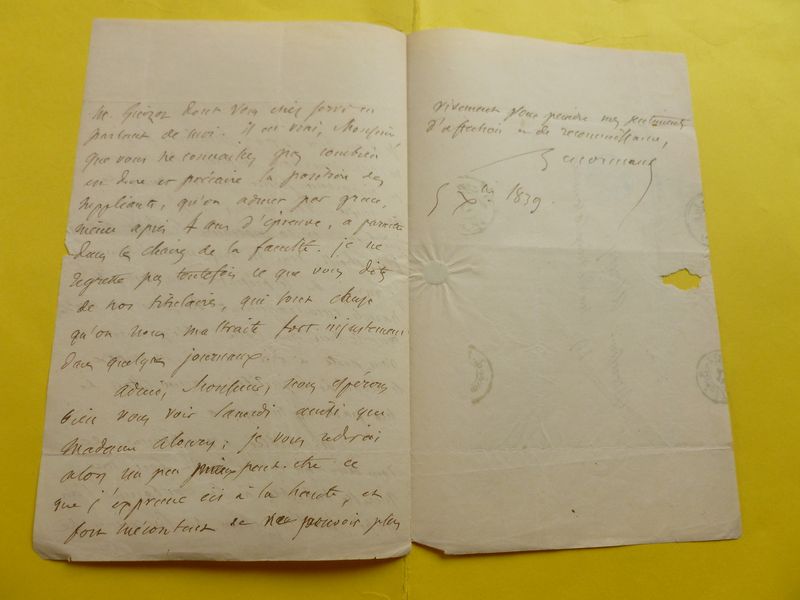 M. Guizot dont vous êtes servi en
parlant de moi. il est vrai, Monsieur,
que vous ne connaissez pas combien
est dure et précaire la position des
suppléants, qu'on admet par grace,
même après 4 ans d'épreuve, à paraitre
dans les chaires de la faculté. je ne
regrette pas toutefois ce que vous dites
de nos titulaires, qui sont cause
qu'on nous maltraite fort injustement
dans quelques journaux.
adieu, Monsieur, nous espérons
bien vous voir Samedi ainsi que
Madame ; je vous redirai
alors un peu mieux peut-être ce
que j'exprime ici à la haste, et
fort mécontent de ne pouvoir plus
vivement vous peindre mes sentiments
d'affection et de reconnaissance,
5 Xbre 1839.